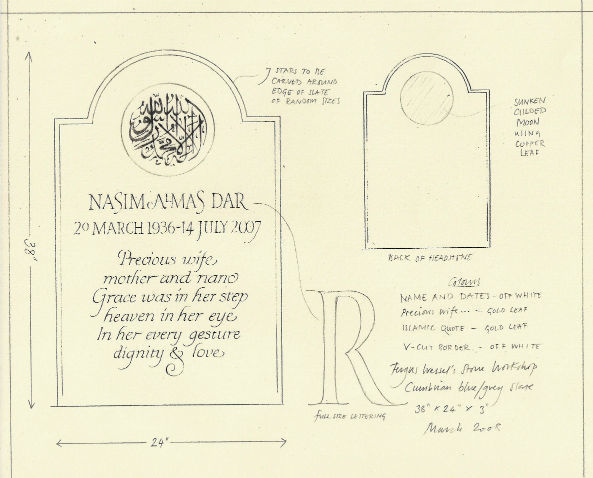 7 STARS TO BE
CARVED AROUND
EDGE OF SLATE
OF RANDOM SIZES
NASIM ALMAS DAR
20 MARCH 1936-14 JULY 2007
Precious wife,
mother and nano
Grace was in her step
heaven in her eye
In her every gesture
dignity & love
38"
24"
SUNKEN
GILDED
MOON
USING
COPPER
LEAF
BACK OF HEADSTONE
R
FULL SIZE LETTERING
Colours
NAME AND DATES - OFF WHITE
Precious Wife... - GOLD LEAF
ISLAMIC QUOTE - GOLD LEAF
V-CUT BORDER - OFF WHITE
Stone Workshop
Cumbrian blue/grey slate
38" x 24" x 3"
March 2008